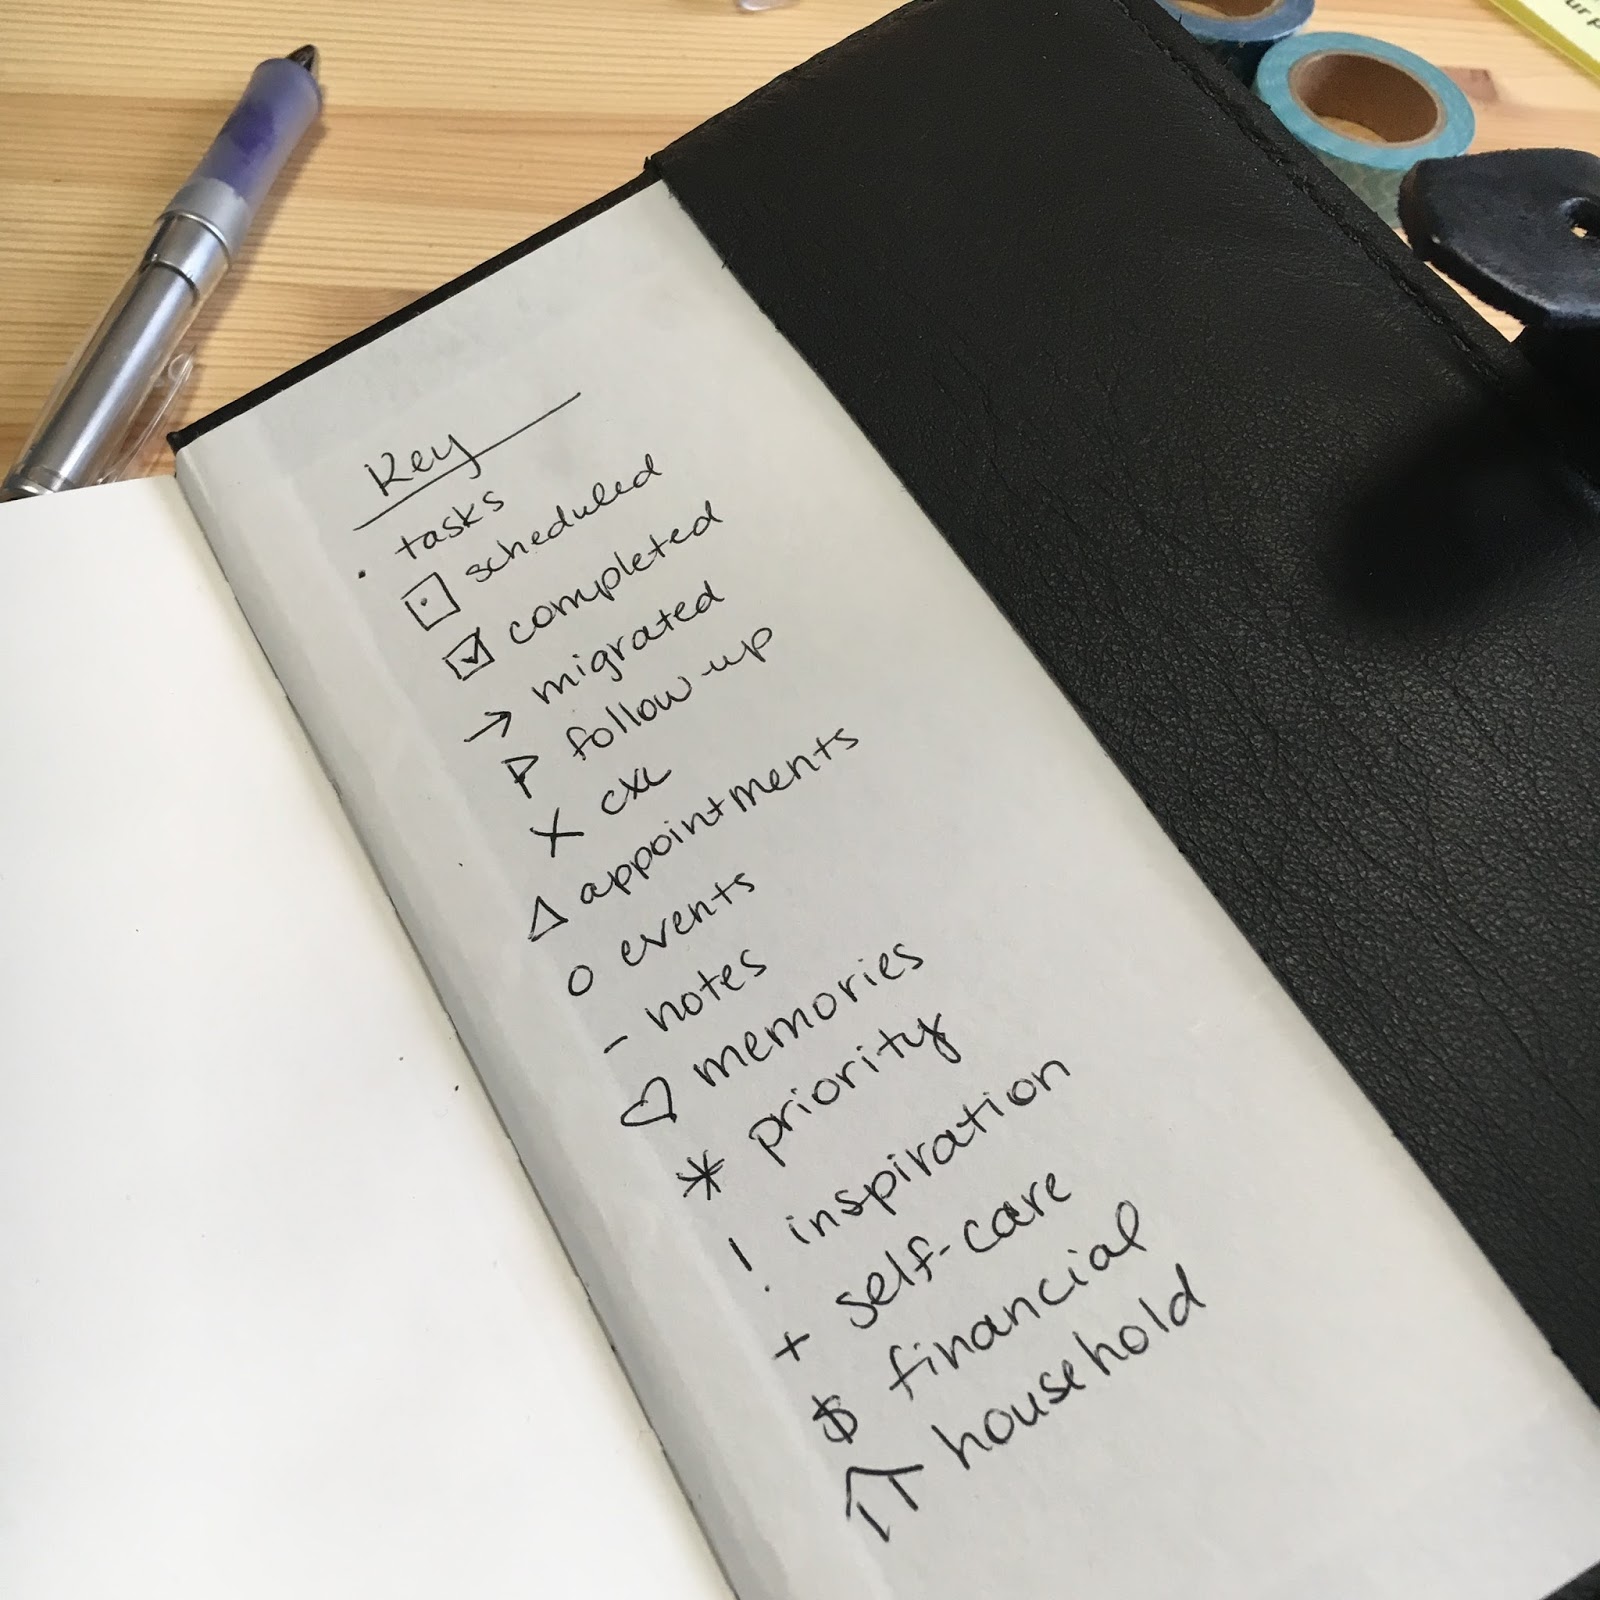 Key
· tasks
⊡ scheduled
☑ completed
→ migrated
P follow-up
X cxl
△ appointments
O events
- notes
♡ memories
* priority
! inspiration
+ self-care
$ financial
⌂ household